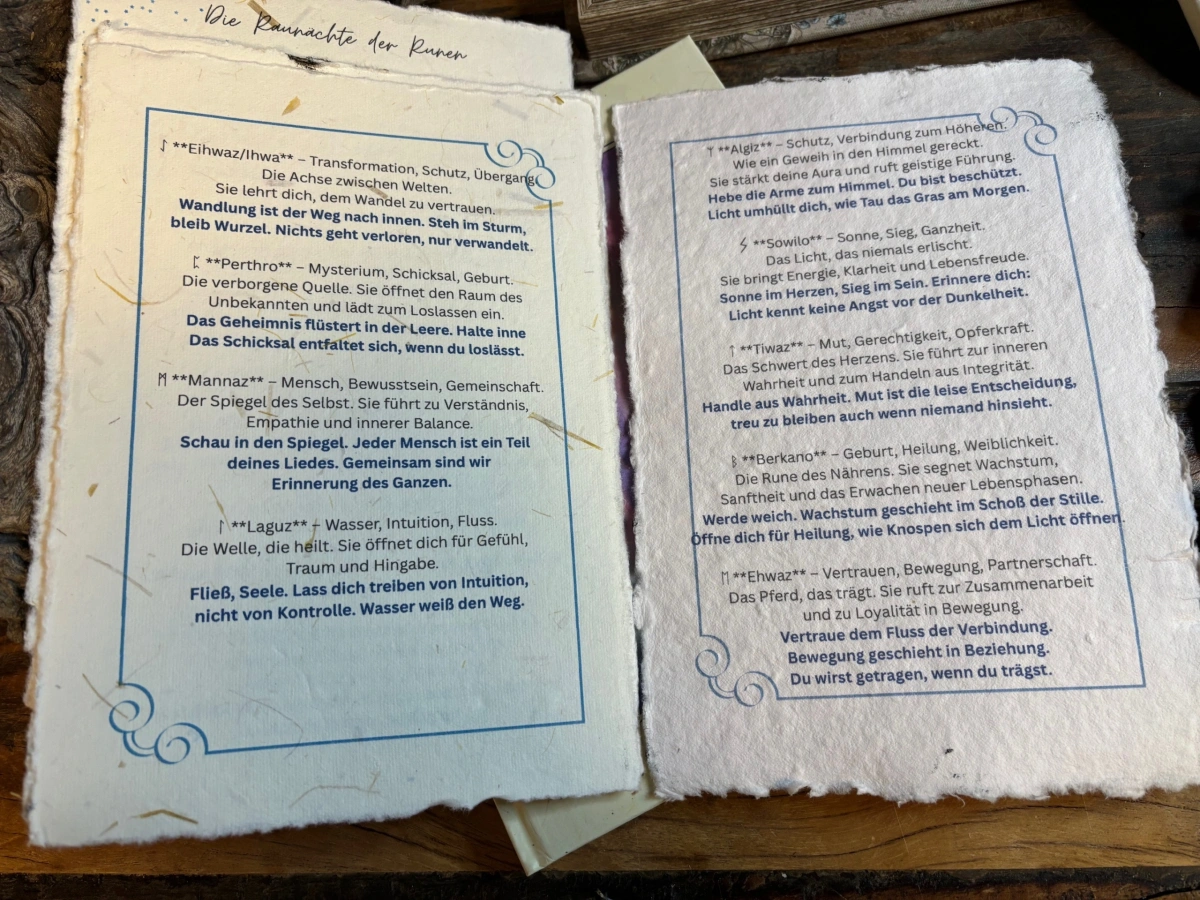 Die Raunächte der Runen
ᛇ **Eihwaz/Ihwa** – Transformation, Schutz, Übergang.
Die Achse zwischen Welten.
Sie lehrt dich, dem Wandel zu vertrauen.
Wandlung ist der Weg nach innen. Steh im Sturm,
bleib Wurzel. Nichts geht verloren, nur verwandelt.
ᛈ **Perthro** – Mysterium, Schicksal, Geburt.
Die verborgene Quelle. Sie öffnet den Raum des
Unbekannten und lädt zum Loslassen ein.
Das Geheimnis flüstert in der Leere. Halte inne
Das Schicksal entfaltet sich, wenn du loslässt.
ᛗ **Mannaz** – Mensch, Bewusstsein, Gemeinschaft.
Der Spiegel des Selbst. Sie führt zu Verständnis,
Empathie und innerer Balance.
Schau in den Spiegel. Jeder Mensch ist ein Teil
deines Liedes. Gemeinsam sind wir
Erinnerung des Ganzen.
ᛚ **Laguz** – Wasser, Intuition, Fluss.
Die Welle, die heilt. Sie öffnet dich für Gefühl,
Traum und Hingabe.
Fließ, Seele. Lass dich treiben von Intuition,
nicht von Kontrolle. Wasser weiß den Weg.
ᛉ **Algiz** – Schutz, Verbindung zum Höheren.
Wie ein Geweih in den Himmel gereckt.
Sie stärkt deine Aura und ruft geistige Führung.
Hebe die Arme zum Himmel. Du bist beschützt.
Licht umhüllt dich, wie Tau das Gras am Morgen.
ᛊ **Sowilo** – Sonne, Sieg, Ganzheit.
Das Licht, das niemals erlischt.
Sie bringt Energie, Klarheit und Lebensfreude.
Sonne im Herzen, Sieg im Sein. Erinnere dich:
Licht kennt keine Angst vor der Dunkelheit.
ᛏ **Tiwaz** – Mut, Gerechtigkeit, Opferkraft.
Das Schwert des Herzens. Sie führt zur inneren
Wahrheit und zum Handeln aus Integrität.
Handle aus Wahrheit. Mut ist die leise Entscheidung,
treu zu bleiben auch wenn niemand hinsieht.
ᛒ **Berkano** – Geburt, Heilung, Weiblichkeit.
Die Rune des Nährens. Sie segnet Wachstum,
Sanftheit und das Erwachen neuer Lebensphasen.
Werde weich. Wachstum geschieht im Schoß der Stille.
Öffne dich für Heilung, wie Knospen sich dem Licht öffnen.
ᛖ **Ehwaz** – Vertrauen, Bewegung, Partnerschaft.
Das Pferd, das trägt. Sie ruft zur Zusammenarbeit
und zu Loyalität in Bewegung.
Vertraue dem Fluss der Verbindung.
Bewegung geschieht in Beziehung.
Du wirst getragen, wenn du trägst.